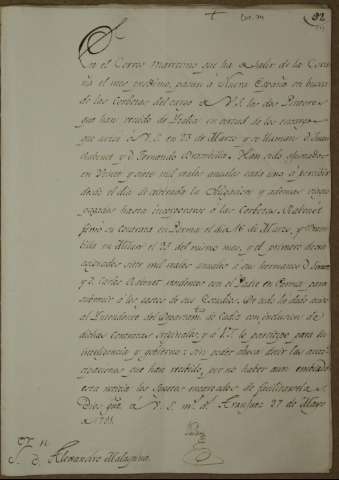 82
En el Correo maritimo que ha de salir de la Coru
ña el mes proximo, pasan á Nueva España en busca
de las Corbetas del cargo de V.S. los dos Pintores
que han venido de Italia en virtud de los encargos
que acerca á V.S. en 23 de Marzo y se llaman D. Juan
Ravenet y D. Fernando Brambila. Han sido ajustados
en veinte y siete mil reales anuales cada uno á percibir
desde el dia de extendida la Obligacion y ademas viages
pagados hasta incorporarse á las Corbetas. Ravenet
firmó su Contrata en Parma el dia 16 de Marzo, y Bram
bila en Milan el 25 del mismo mes, y el primero dexa
asignados siete mil reales anuales á sus hermanos D. Simon
y D. Carlos Ravenet residentes con el Padre en Parma para
subvenir á los gastos de sus Estudios. De todo he dado aviso
al Intendente del Departam.to de Cadiz con inclusion de
dichas Contratas originales, y á V.S. lo participo para su
inteligencia y gobierno: sin poder ahora decir las anti
cipaciones que han recibido, por no haber aun embiado
esta noticia los Sujetos encargados de facilitarselas.
Dios gue. á V.S. m.s a.s Aranjuez 27 de Mayo
de 1791.
S. D. Alexandro Malaspina.